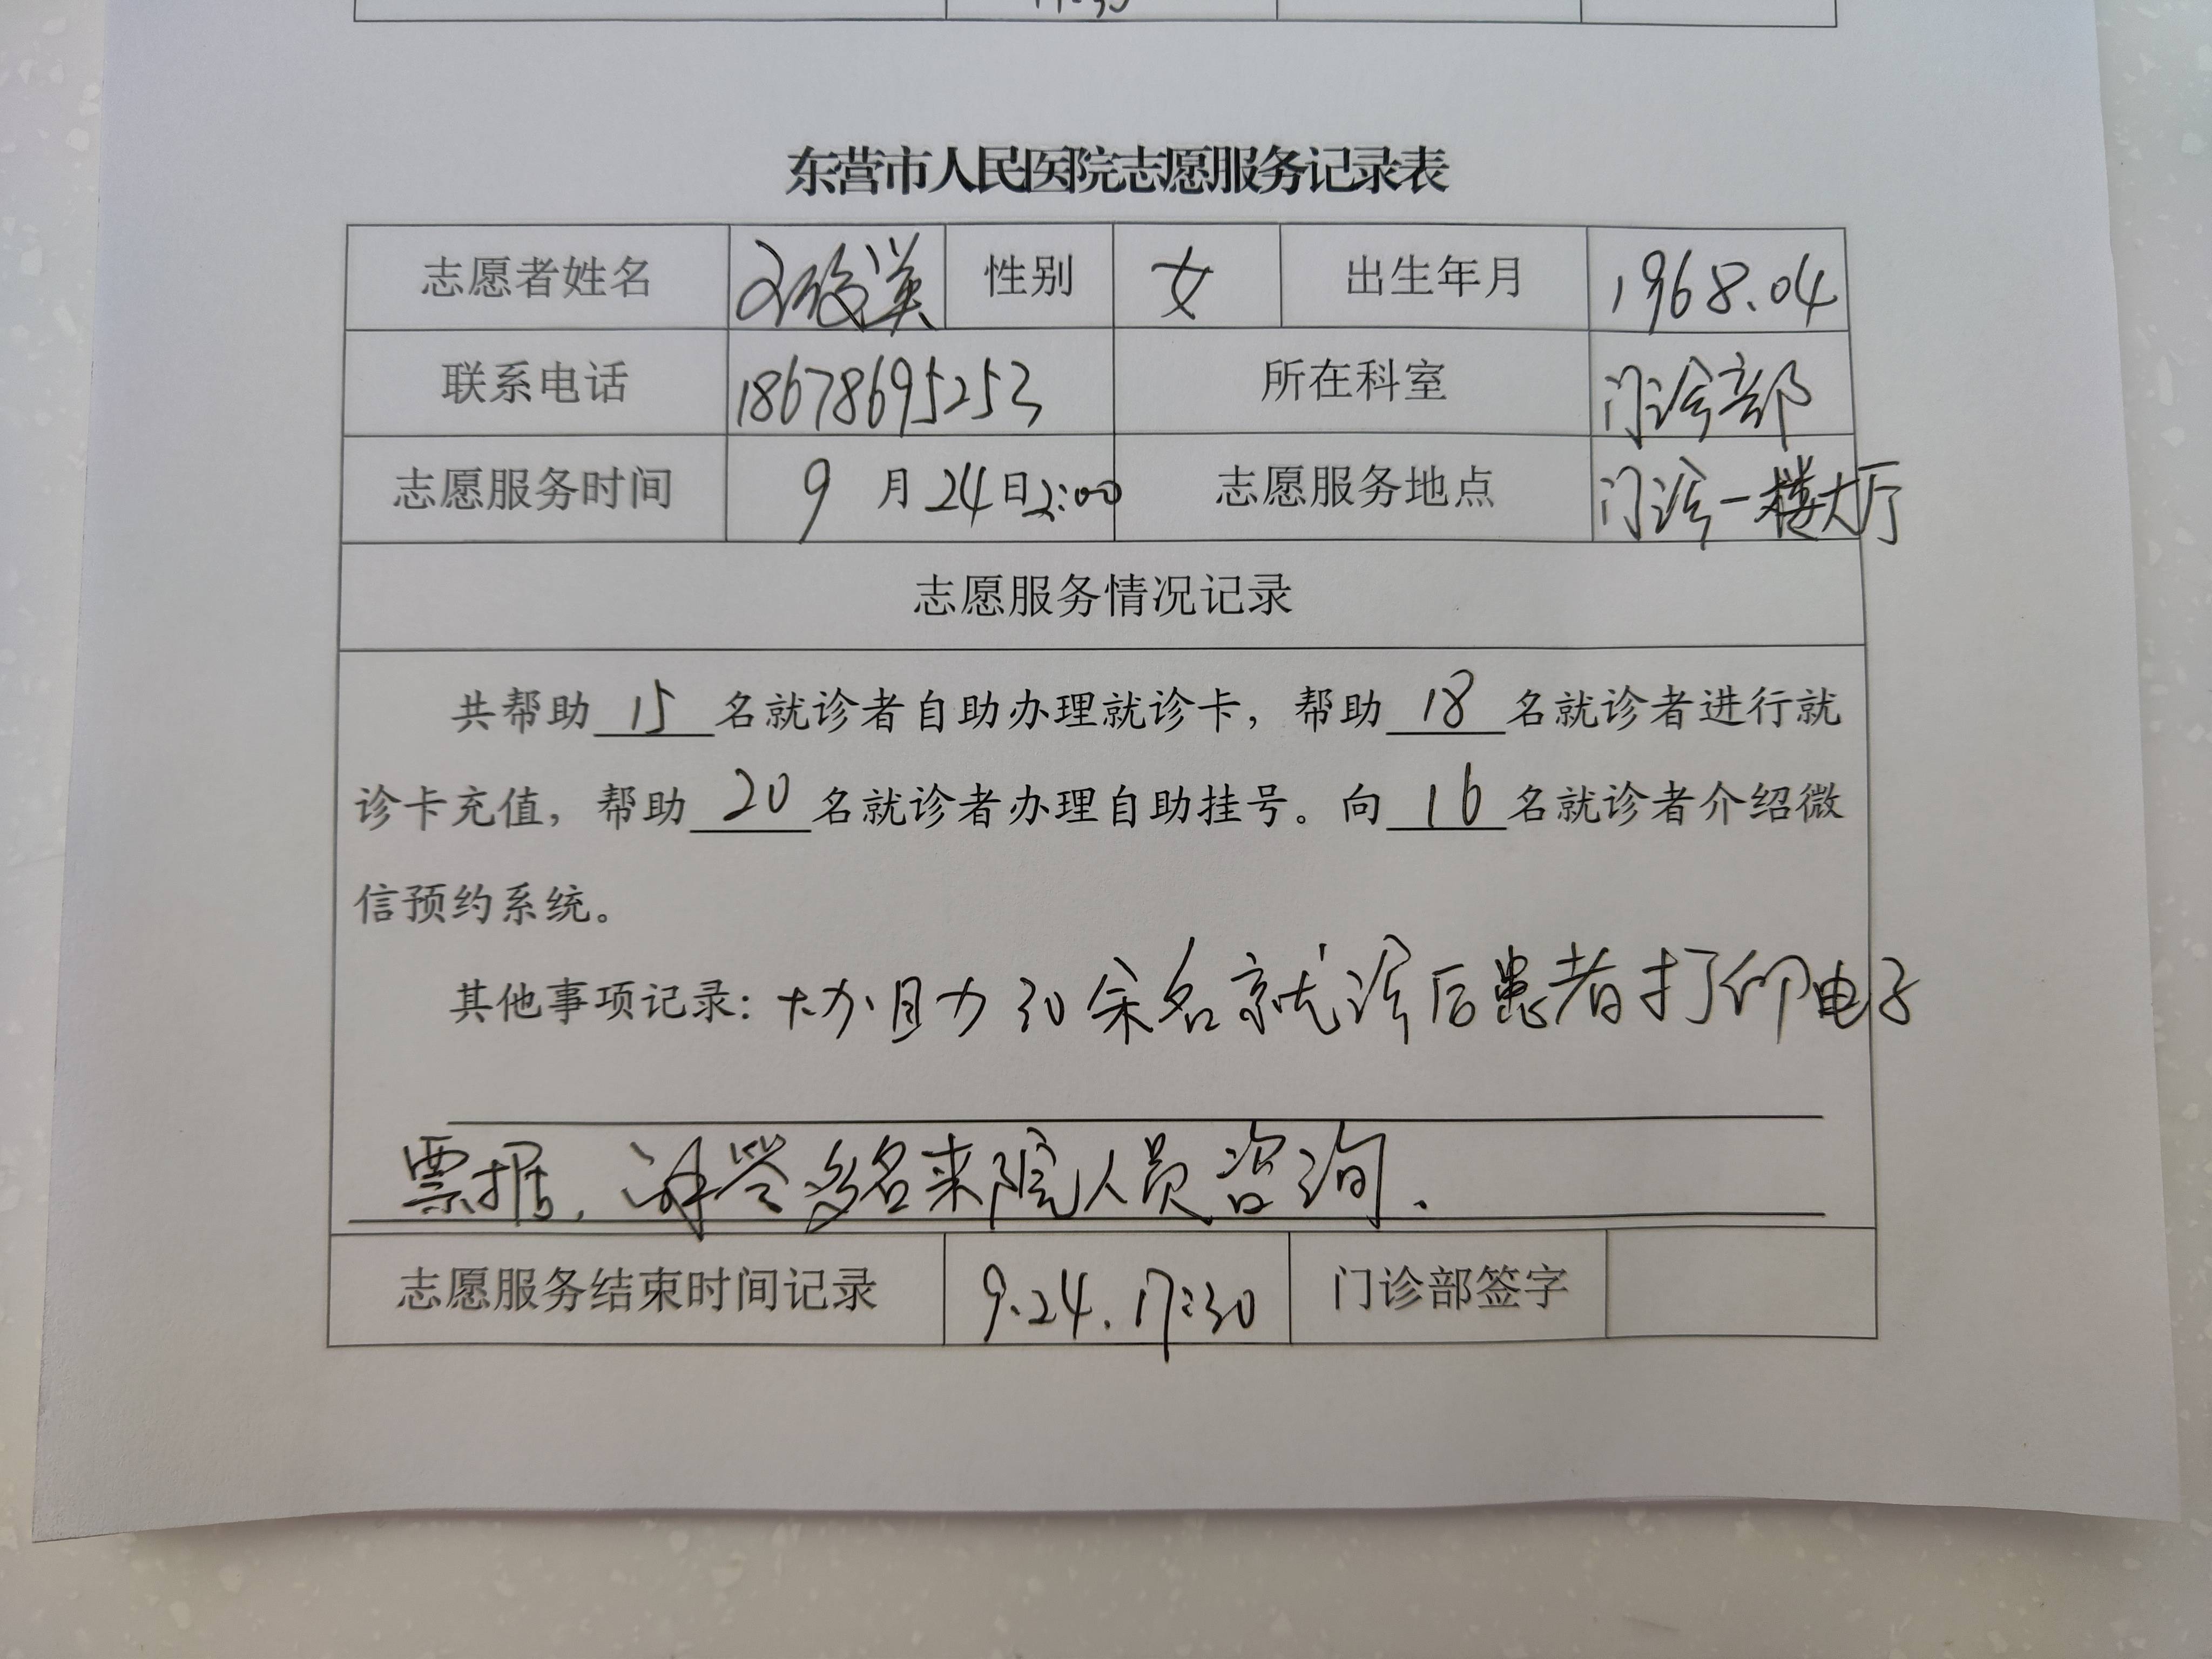 东营市人民医院志愿服务记录表
志愿者姓名 性别 女 出生年月 1968.04
联系电话 18678695253 所在科室 门诊部
志愿服务时间 9月24日2:00 志愿服务地点 门诊一楼大厅
志愿服务情况记录
共帮助 15 名就诊者自助办理就诊卡，帮助 18 名就诊者进行就
诊卡充值，帮助 20 名就诊者办理自助挂号。向 16 名就诊者介绍微
信预约系统。
其他事项记录：协助30余名就诊后患者打印电子
票据，解答多名来院人员咨询.
志愿服务结束时间记录 9.24.17:30 门诊部签字